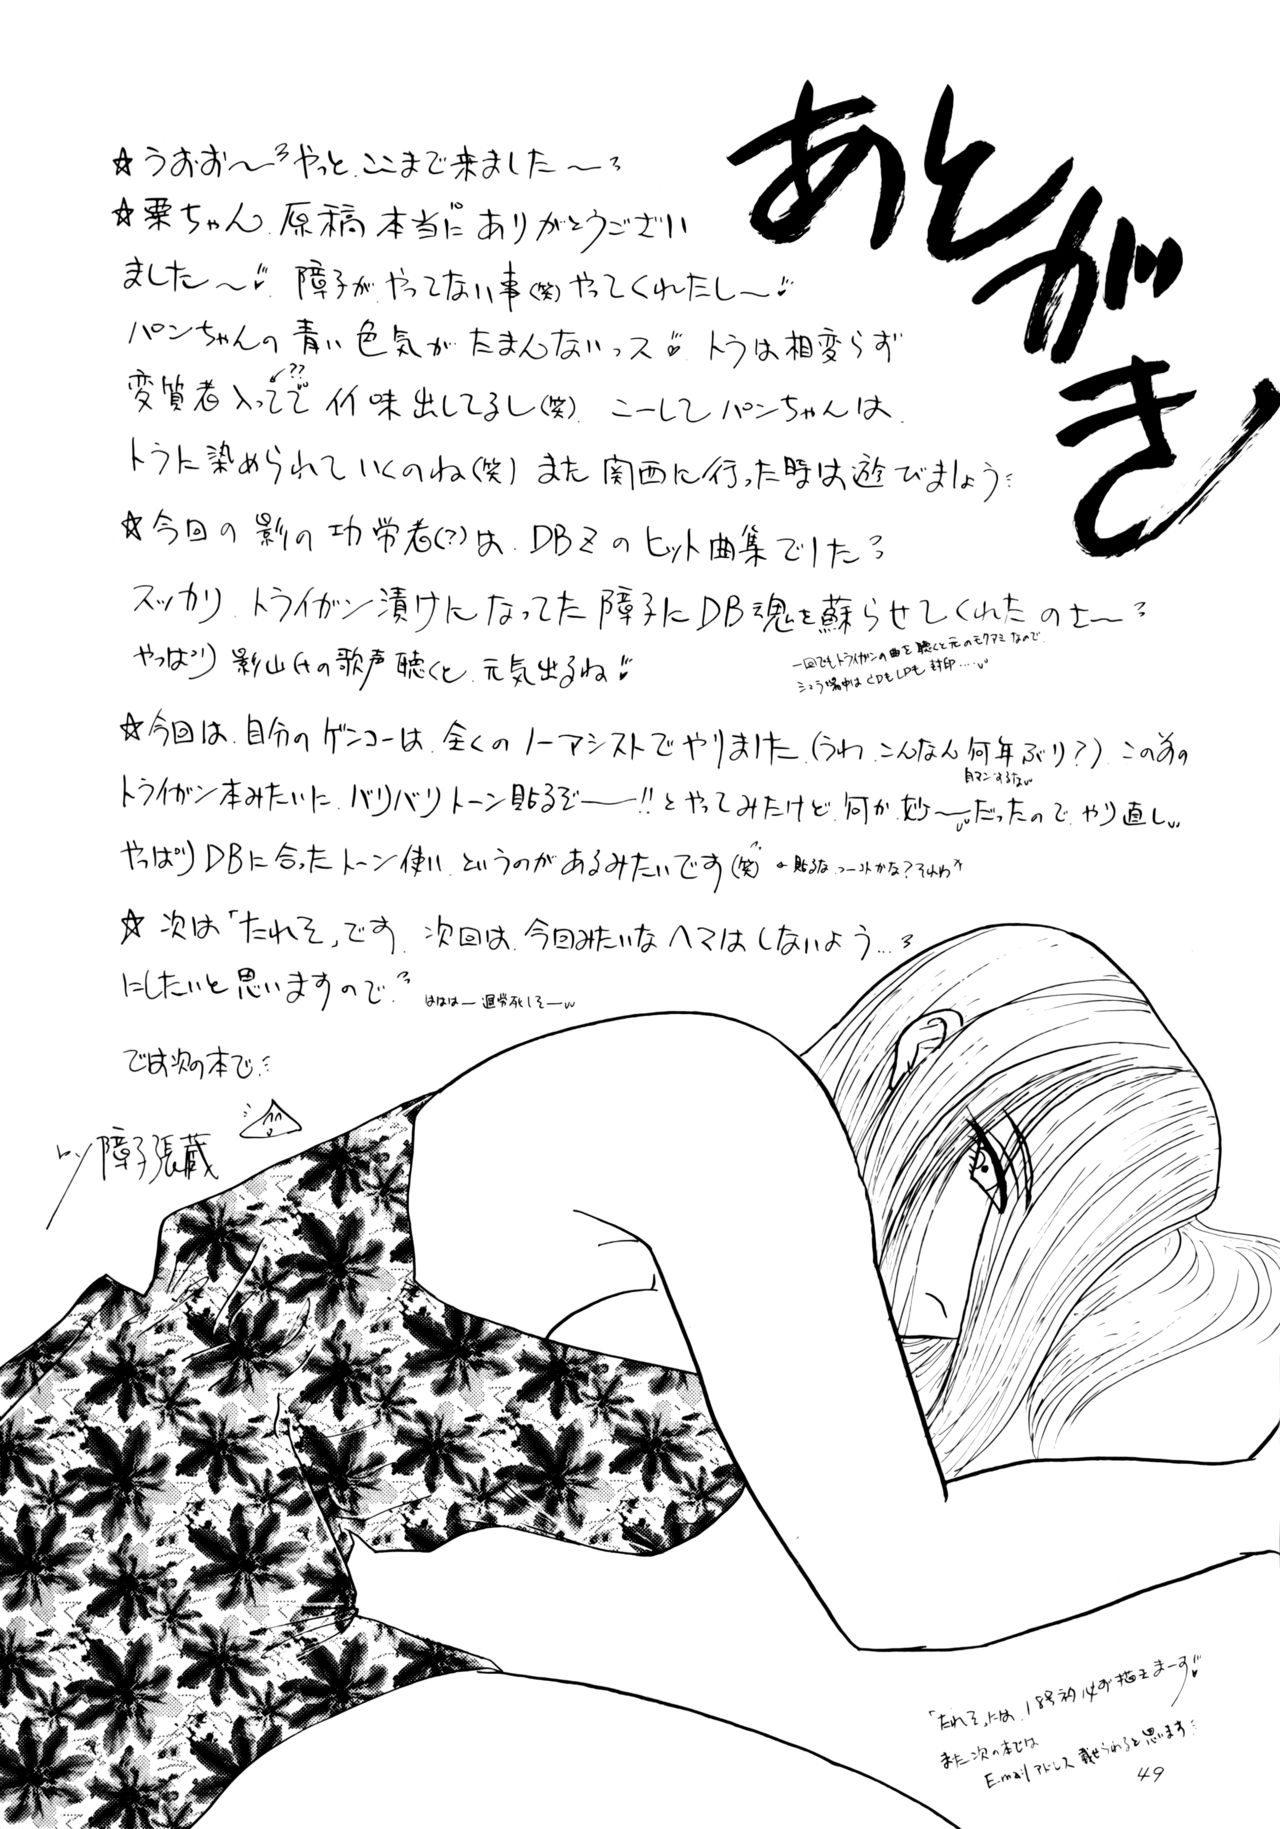 あとがき
☆うおお〜やっと、ここまで来ました〜
☆栗ちゃん、原稿本当にありがとうござい
ました〜 障子がやってない事(笑)やってくれたし〜
パンちゃんの青い色気がたまんないっス トラは相変らず
変質者入ってで イイ味出してるし(笑) こーしてパンちゃんは
??
トラに染められていくのね(笑)また関西に行った時は遊びましょう
☆今回の影の功労者(?)は、DBZのヒット曲集でした
スッカリ、トライガン漬けになってた障子にDB魂を蘇らせてくれたのさ〜
やっぱり影山氏の歌声聴くと、元気出るね
一回でもトライガンの曲を聴くと元のモクアミなので
シュラ場中はCDもLPも封印……
☆今回は、自分のゲンコーは、全くのノーアシストでやりました(うわ、こんなん何年ぶり?)この前の
自マンするない
トライガン本みたいに、バリバリトーン貼るぞーー!!とやってみたけど、何か妙〜だったので、やり直し
やっぱりDBに合ったトーン使い、というのがあるみたいです(笑)
☆次は「たれそ」です。次回は、今回みたいなヘマはしないよう…
にしたいと思いますので
ははは—過労死しそー
では次の本で
障子張蔵
「たれそ」には、18号
また次の本では
E-mailアドレス載せられると思います
49